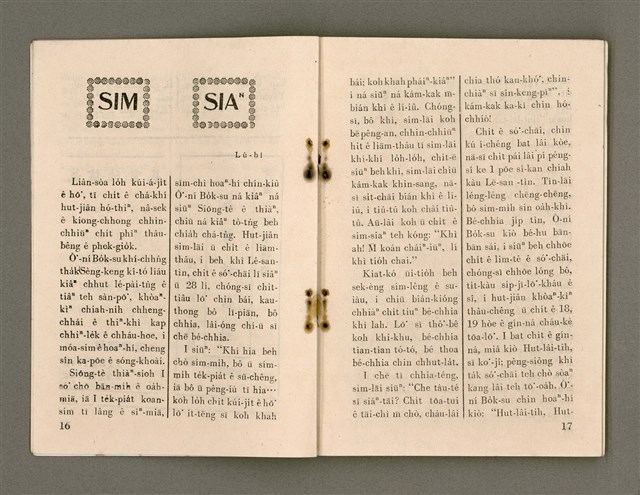 SIM SIAⁿ
Lú-hí
Liân-sòa lo̍h kúi-á-ji̍t
ê hō͘, tī chit ê chá-khí
hut-jiân hó-thiⁿ, ná-sek
ê kiong-chhong chhin-
chhiūⁿ chit phīⁿ thâu-
bêng ê phek-gio̍k.
Ô͘-nî Bo̍k-su khí-chhn̂g
tha̍k Sèng-keng kî-tó liáu
kiâⁿ chhut lé-pài-tn̂g ê
tiâⁿ teh sàn-pō͘, khòaⁿ-
kìⁿ chiah-nih chheng-
chhái ê thiⁿ-khì kap
chhiⁿ-le̍k ê chháu-hoe, i
móa-sim ê hoaⁿ-hí, cheng
sîn ka-pōe ê sóng-khoài.
Siōng-tè thiàⁿ-sioh I
só͘ chō bān-mi̍h ê oa̍h-
miā, iā I te̍k-pia̍t koan-
sim tī lâng ê sìⁿ-miā,
16
sim-chí hoaⁿ-hí chìn-kiù
Ô͘-nî Bo̍k-su ná kiâⁿ ná
siūⁿ Siōng-tè ê thiàⁿ,
chiū ná kiâⁿ tò-tńg beh
chia̍h chá-tǹg. Hut-jiân
sim-lāi ū chit ê liām-
thâu, i beh khì Lê-san-
tin, chit ê só͘-chāi lī siāⁿ
ū 28 lí, chóng-sī chit-
tiâu lō͘ chin bái, kau-
thong bô lī-piān, bô
chhia, lâi-óng chí-ū sī
chē bé-chhia.
I siūⁿ: “Khì hia beh
chò sím-mih, bô ū sím-
mih te̍k-pia̍t ê sū-chêng,
iā bô ū pēng-iú tī hia…
koh lo̍h chit kúi-ji̍t ê hō͘
lō͘ it-tēng sī koh khah
bái; koh khah pháiⁿ-kiâⁿ”
i ná siūⁿ ná kám-kak m̄-
biān khì ê lí-iû. Chóng-
sī, bô khì, sim-lāi koh
bē pêng-an, chhin-chhiūⁿ
chit ê liām-thâu tī sim-lāi
khí-khí lo̍h-lo̍h, chit-ē
siūⁿ beh khì, sim-lāi chiū
kám-kak khin-sang, nā-
sī sit-chāi biān khì ê lí-
iû, i tiū-tû koh chài tiû-
tû. Āu-lâi koh ū chit ê
sim-siaⁿ teh kóng: “Khì
ah! M̄ koán cháiⁿ-iūⁿ, lí
khì tio̍h chai.”
Kiat-kó ūi-tio̍h beh
sek-èng sim-lêng ê su-
iàu, i chiū bián-kióng
chhiàⁿ chi̍t tiuⁿ bé-chhia
khì lah. Lō͘ sī thô͘-bê
koh khi-khu, bé-chhia
tian-tian tó-tó, bé thoa
bé-chhia chin chhut-la̍t.
I chē tī chhia-téng,
sim-lāi siūⁿ: “Che táu-té
sī siáⁿ-tāi? Chit tōa-tui
ê tāi-chì m̄ chò, cháu-lâi
chia thó kan-khó͘, chin-
chiàⁿ sī sîn-keng-pīⁿ”, i
kám-kak ka-kī chin hó-
chhiò!
Chit ê só͘-chāi, chin
kú í-chêng bat lâi kòe,
nā-sī chit pái lâi pí pêng-
sî ke 1 pōe sî-kan chiah
kàu Lê-san-tin. Tìn-lāi
léng-léng chēng-chēng,
bô sím-mih sin oa̍h-khì.
Bé-chhia ji̍p tìn, Ô͘-nî
Bo̍k-su kiò bé-hu bān-
bān sái, i siūⁿ beh chhōe
chit ê lim-tê ê só͘-chāi,
chóng-sī chhōe lóng bô,
tit-kàu si̍p-jī-lō͘-kháu ê
sî, i hut-jiân khòaⁿ-kìⁿ
thâu-chêng ū chit ê 18,
19 hòe ê gín-ná cháu-kè
tōa-lō͘. I bat chit ê gín-
ná, miâ kiò Hut-lâi-tih,
sī ko͘-jî; pêng-siông khì
ta̍k só͘-chāi teh chò sòaⁿ
kang lâi teh tō͘-oa̍h. Ô͘-
nî Bo̍k-su chin hoaⁿ-hí
kiò: “Hut-lâi-tih, Hut-
17